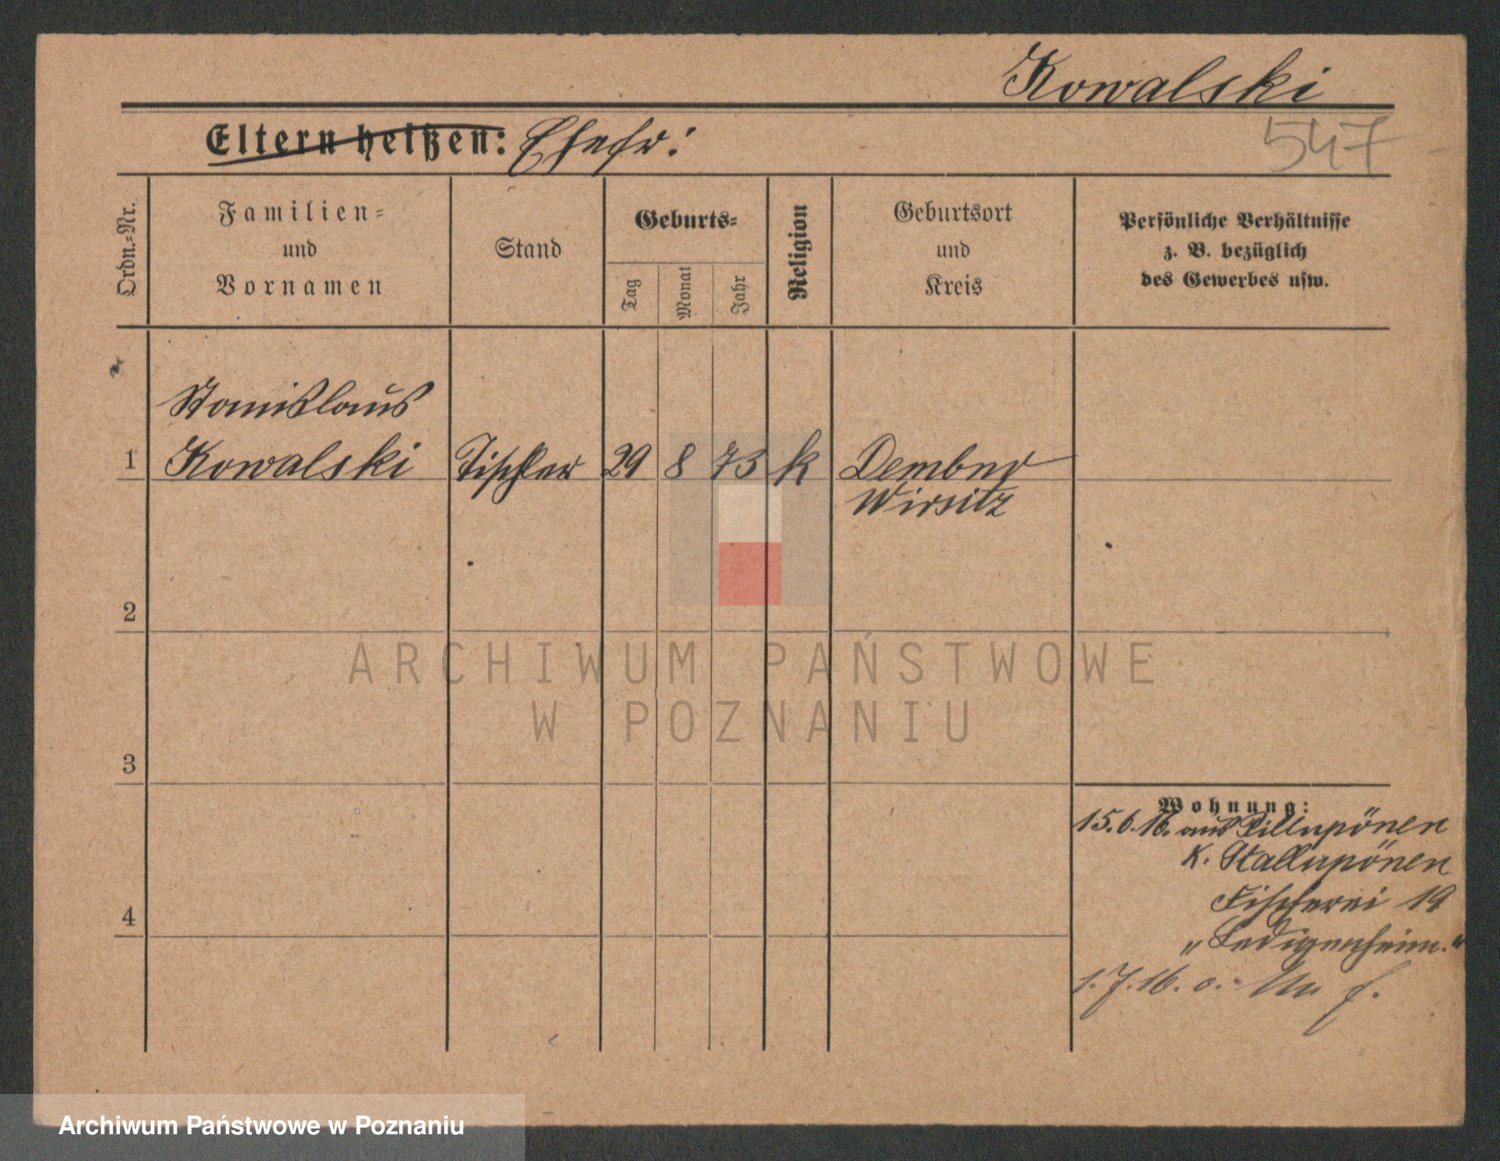 Kowalski
547
Eltern heißen: Ehefr:
Ordn.=Nr.
Familien=
und
Vornamen
Stand
Geburts=
Tag
Monat
Jahr
Religion
Geburtsort
und
Kreis
Persönliche Verhältnisse
z. B. bezüglich
des Gewerbes usw.
Stanislaus
1 Kowalski Tischler 29 8 73 k
Wirsitz
2
3
4
Wohnung:
15.6.16. aus Pillupönen
K. Stallupönen
Fischerei 19
„Ledigenheim."
1.7.16.
ARCHIWUM PAŃSTWOWE
W POZNANIU
Archiwum Państwowe w Poznaniu